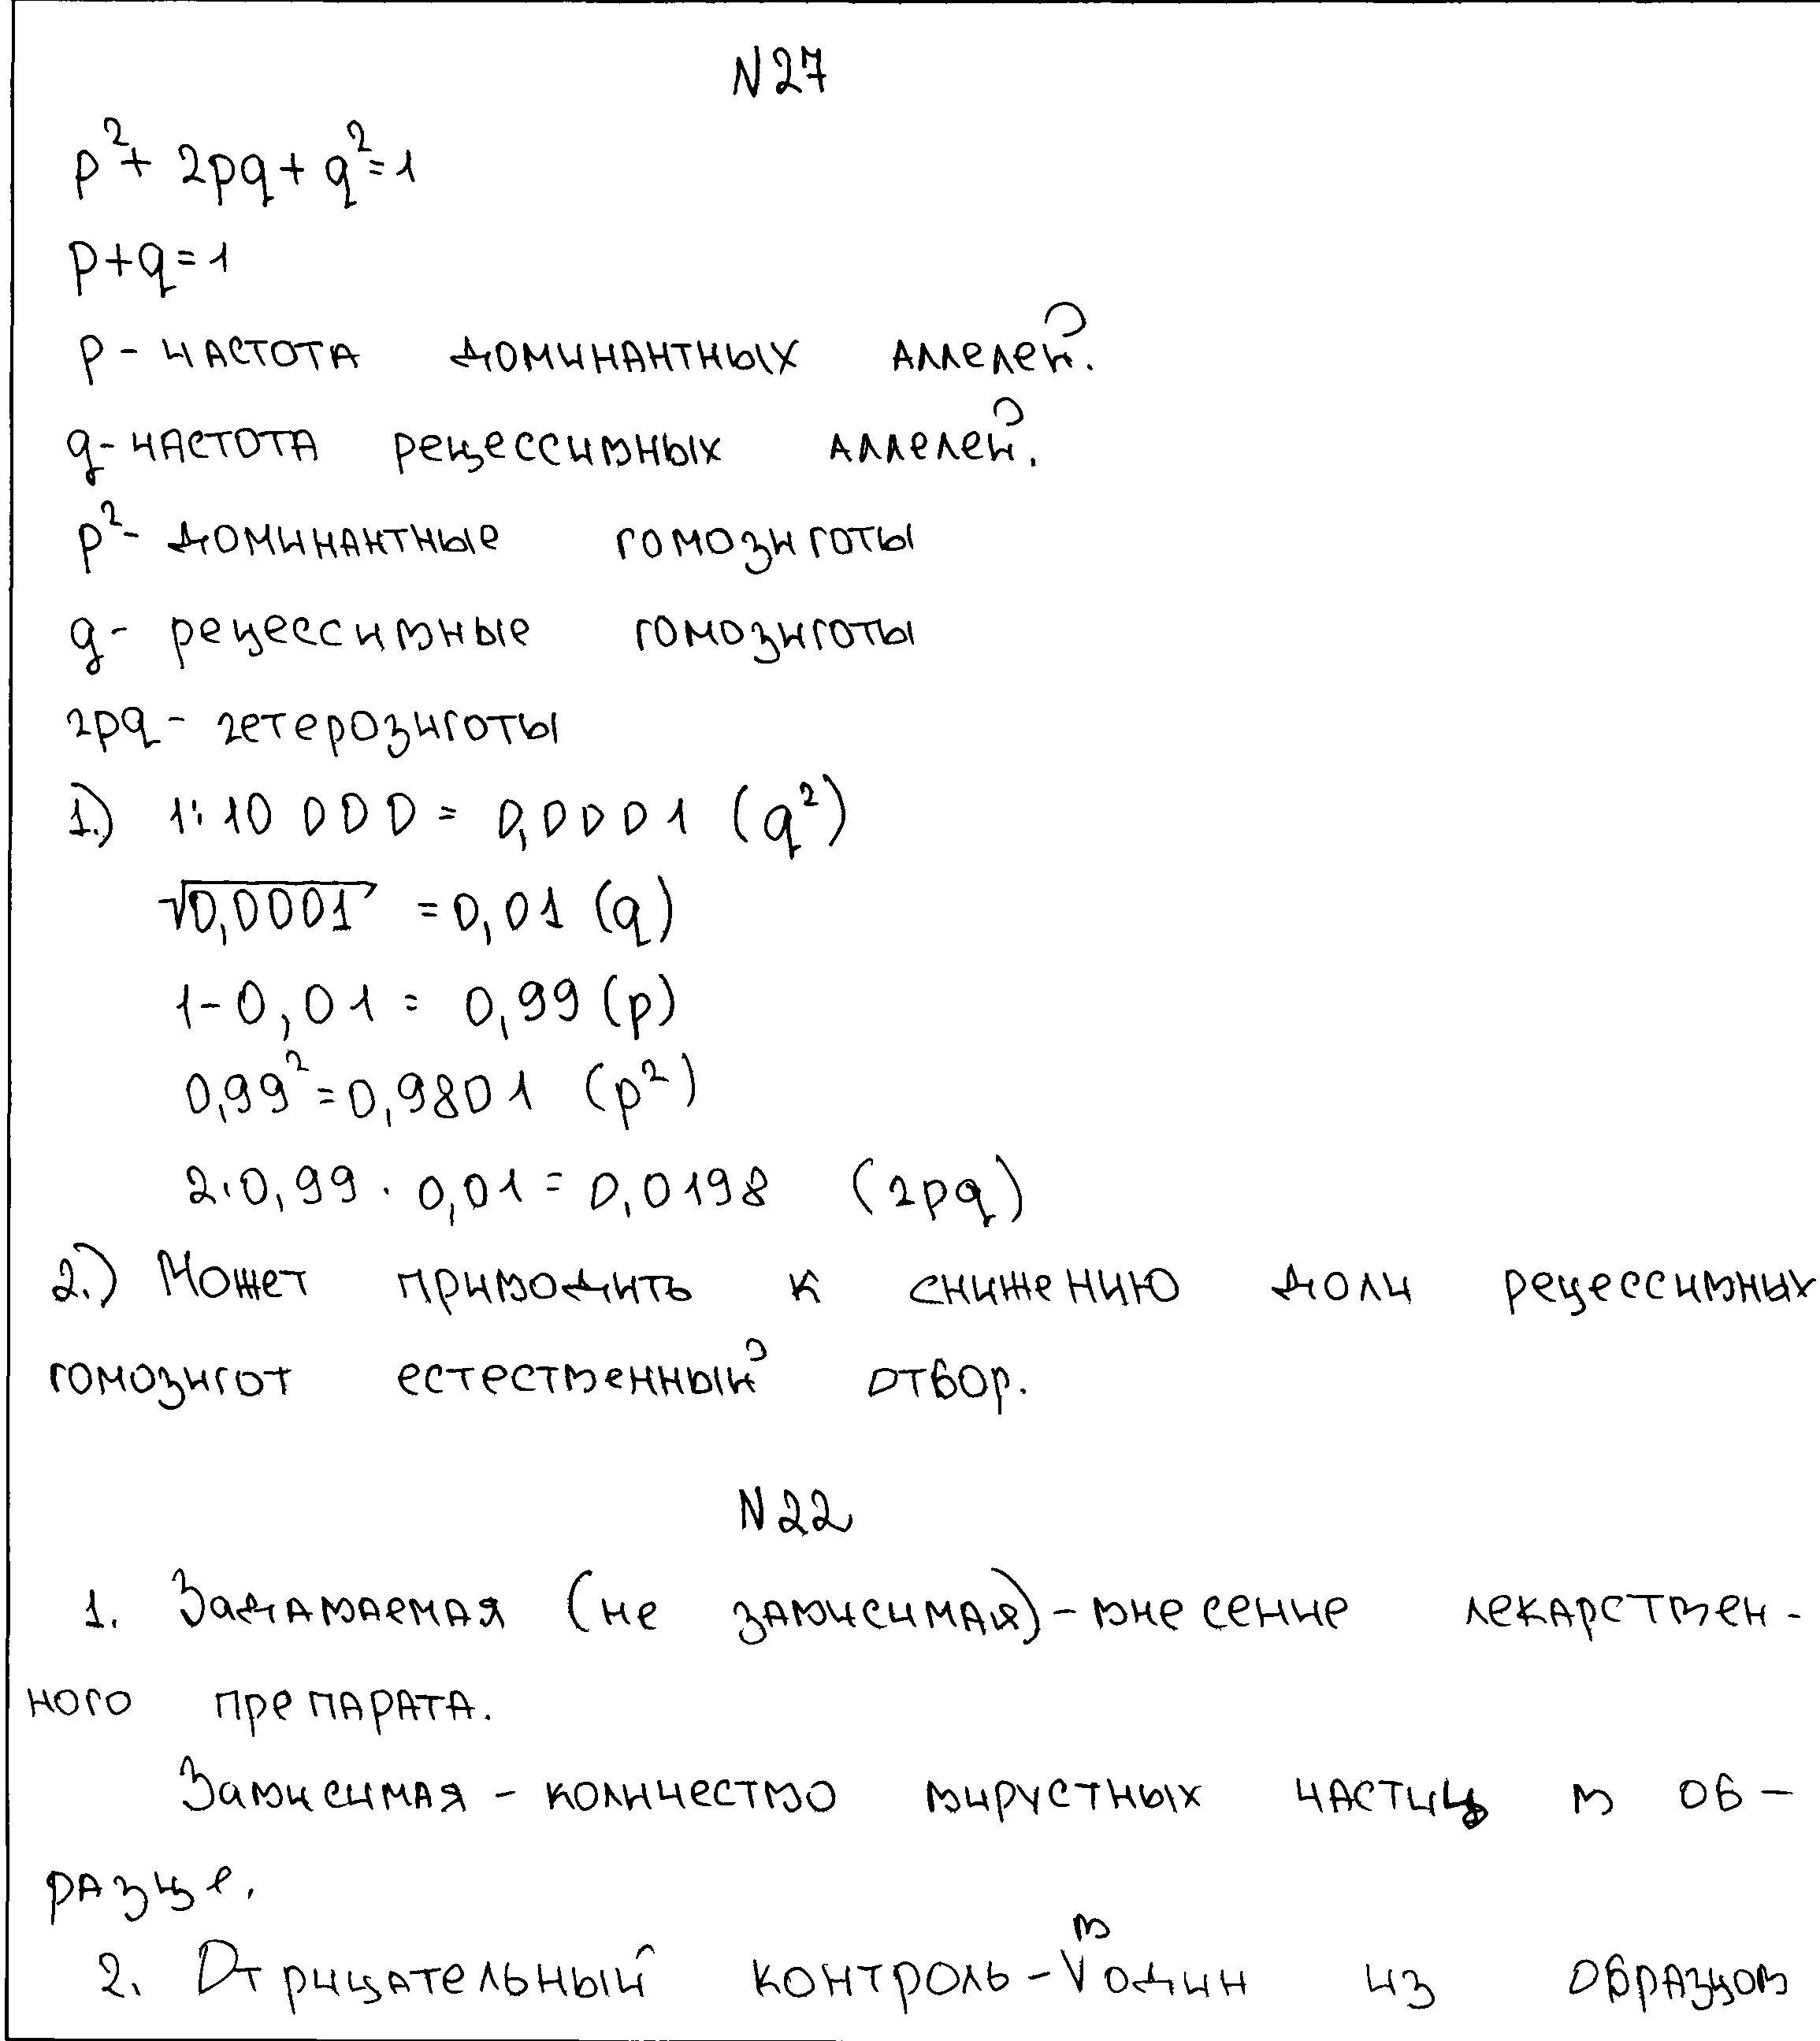 N27
p²+ 2pq + q²=1
p+q=1
p - частота доминантных аллелей.
q - частота рецессивных аллелей.
p² - доминантные гомозиготы
q - рецессивные гомозиготы
2pq - гетерозиготы
1.) 1:10 000 = 0,0001 (q²)
√0,0001 = 0,01 (q)
1-0,01 = 0,99 (p)
0,99²=0,9801 (p²)
2·0,99·0,01=0,0198 (2pq)
2.) Может приводить к снижению доли рецессивных
гомозигот естественный отбор.
N22
1. Задаваемая (не зависимая) - внесение лекарствен-
ного препарата.
Зависимая - количество вирустных частиц в об-
разце.
2. Отрицательный контроль - в один из образцов